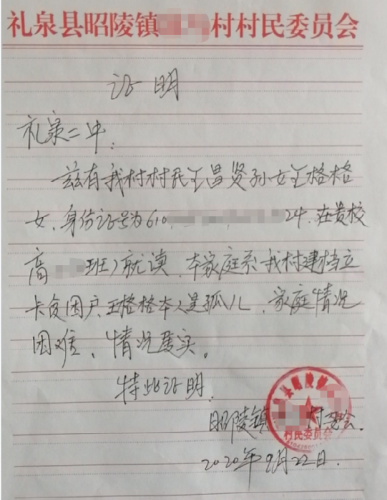 礼泉县昭陵镇 村村民委员会
证明
礼泉二中：
兹有我村村民王昌贤孙女王格格
女，身份证号为610 24，在贵校
高 班）就读，本家庭系我村建档立
卡贫困户，王格格本人是孤儿，家庭情况
困难，情况属实。
特此证明
昭陵镇 村委会
村民委员会
2020年9月22日.